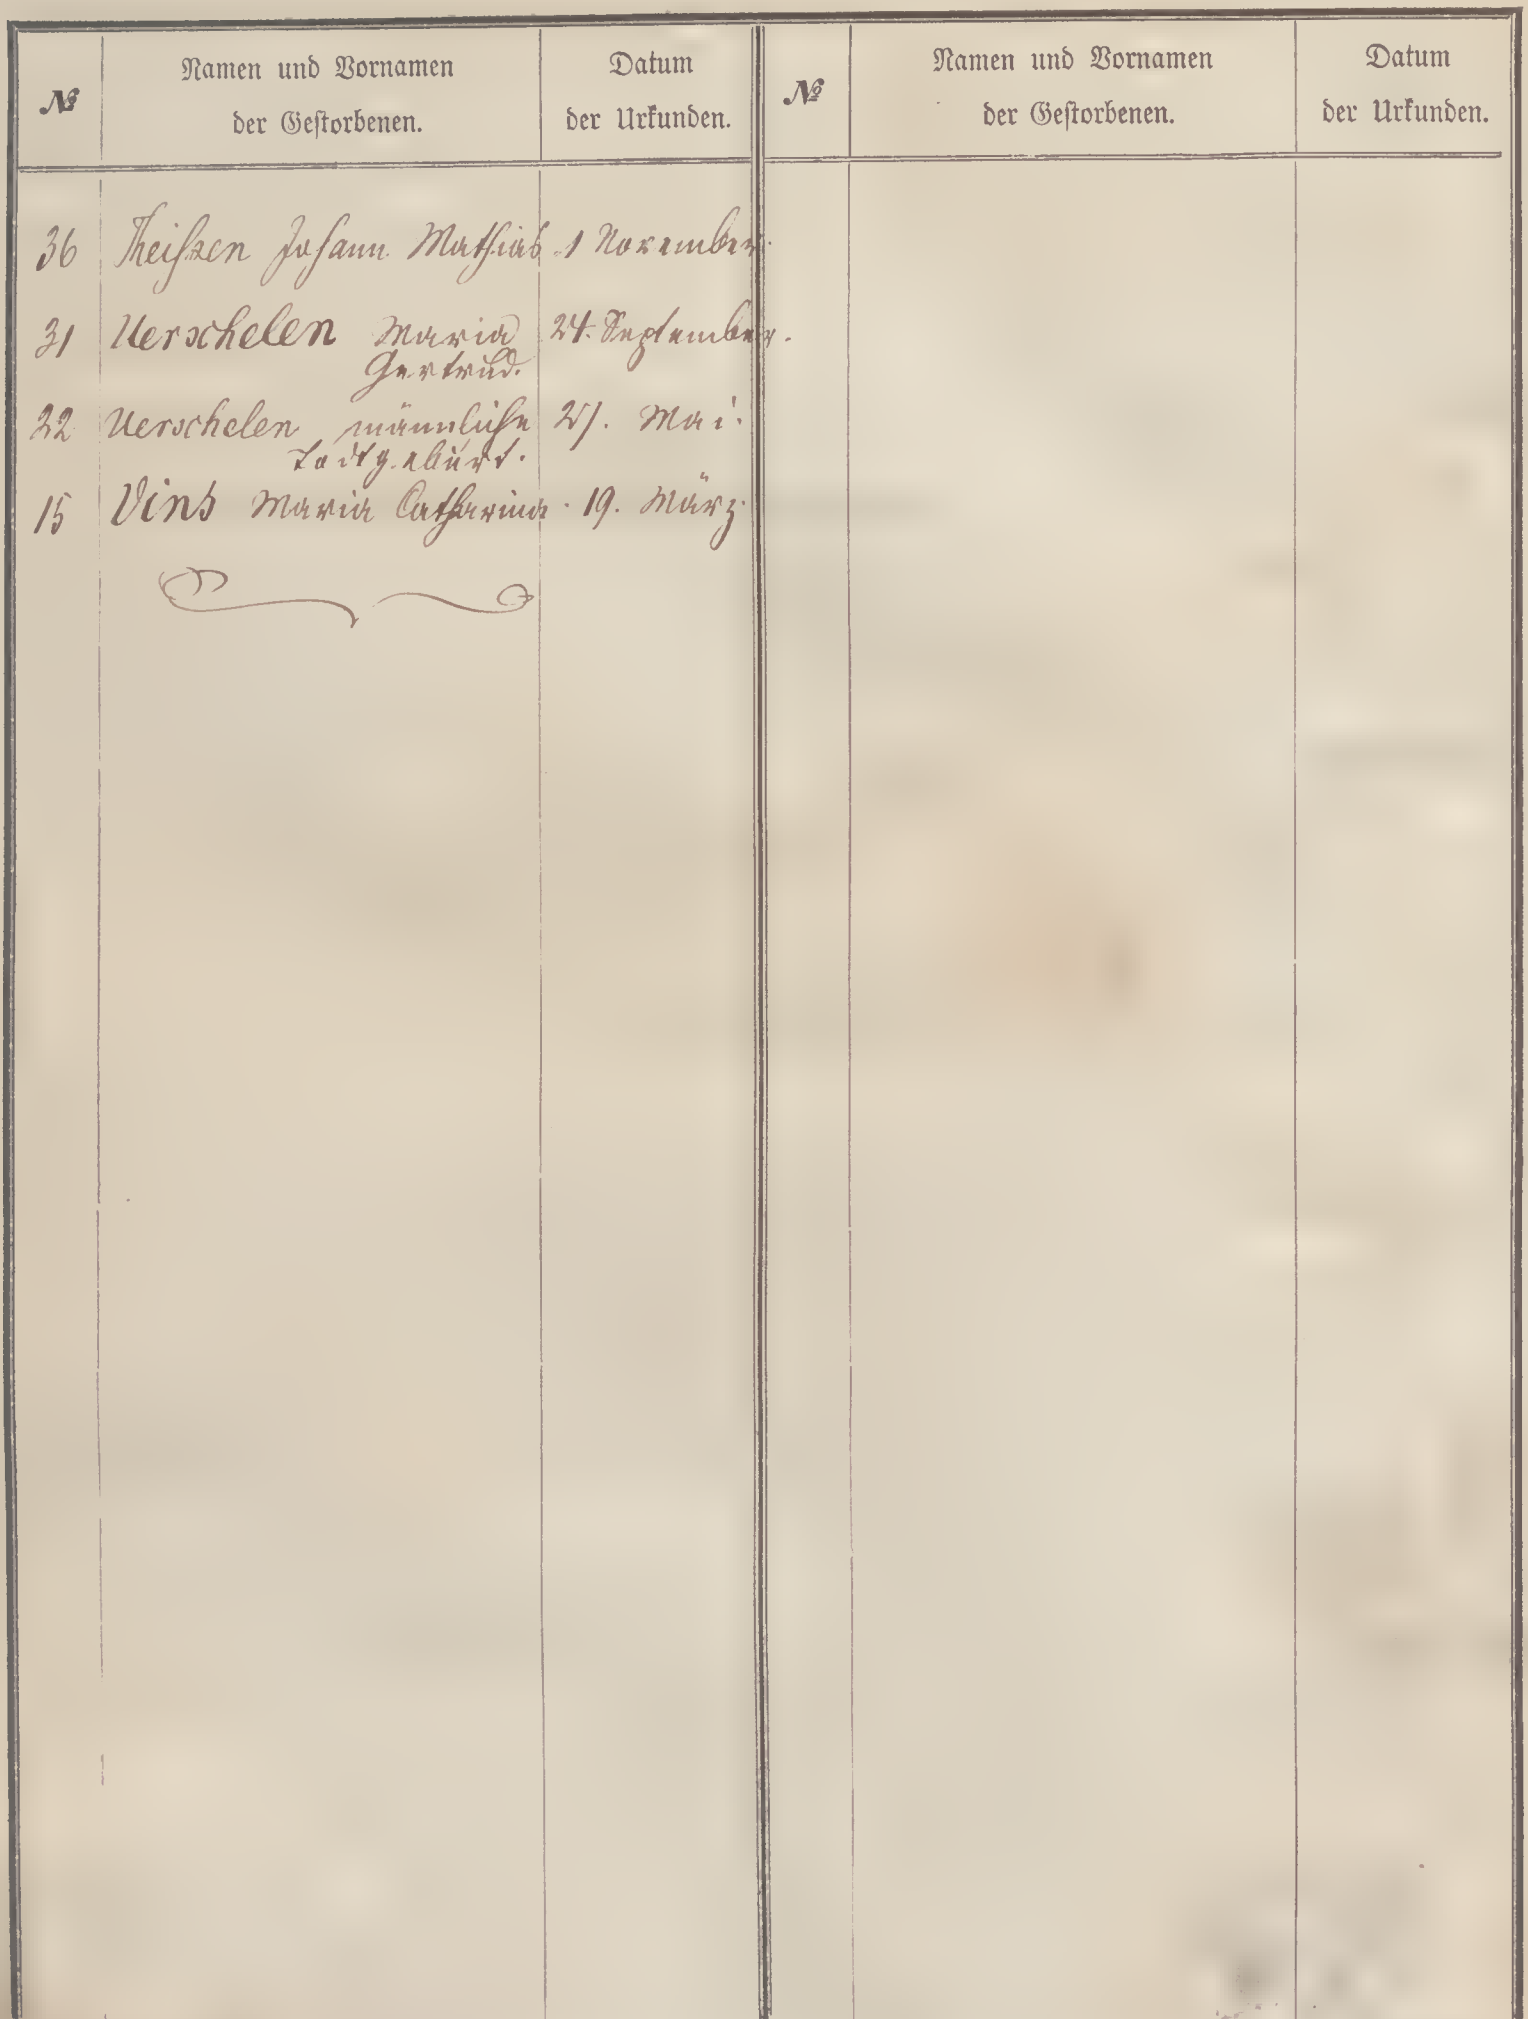 № Namen und Vornamen der Gestorbenen. Datum der Urkunden. № Namen und Vornamen der Gestorbenen. Datum der Urkunden.
36 Theißen Johann Mathias 1 November.
31 Uerschelen Maria 24. September.
Gertrud.
22 Uerschelen männliche 27. Mai.
Todtgeburt.
15 Vins Maria Catharina. 19. März.